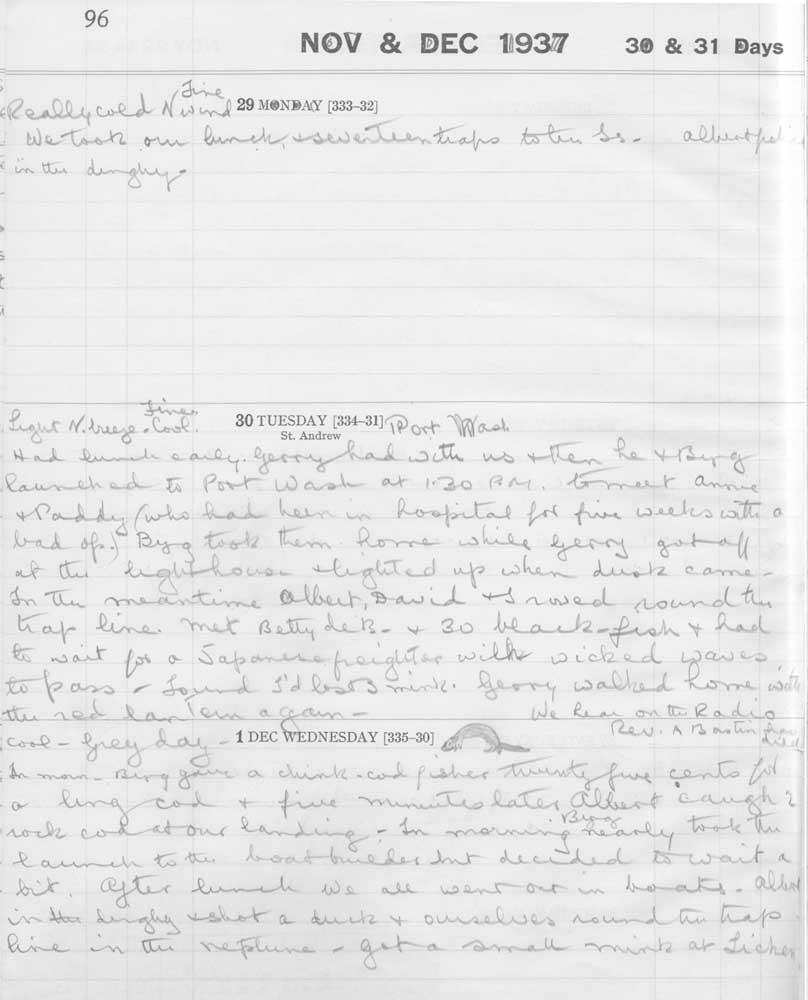 96
NOV & DEC 1937 30 & 31 Days
Fine
Really cold N wind 29 MONDAY [333–32]
We took our lunch, & seventeen traps to the Is - Albert
in the dinghy -
Fine
Light N. breeze. Cool. 30 TUESDAY [334–31] Port Wash
St. Andrew
Had lunch early. Gerry had with us & then he & Byrg
launched to Port Wash at 1:30 P.M. to meet Annie
& Paddy (who had been in hospital for five weeks with a
bad op.) Byrg took them home while Gerry got off
at the lighthouse & lighted up when dusk came -
In the meantime Albert, David & I rowed round the
trap line. Met Betty de B - & 30 black-fish & had
to wait for a Japanese freighter with wicked waves
to pass - Found I'd lost 3 mink. Gerry walked home with
the red lan 'em again - We hear on the Radio
Rev. A Bastin
cool - Grey day - 1 DEC WEDNESDAY [335–30]
In morn - Byrg gave a chink - cod fisher twenty five cents for
a ling cod & five minutes later Albert caught 2
rock cod at our landing - In morning Byrg nearly took the
launch to the boatbuilder but decided to wait a
bit. After lunch we all went out in boats - Albert
in the dinghy & shot a duck & ourselves round the trap
line in the neptune - got a small mink at Lichen